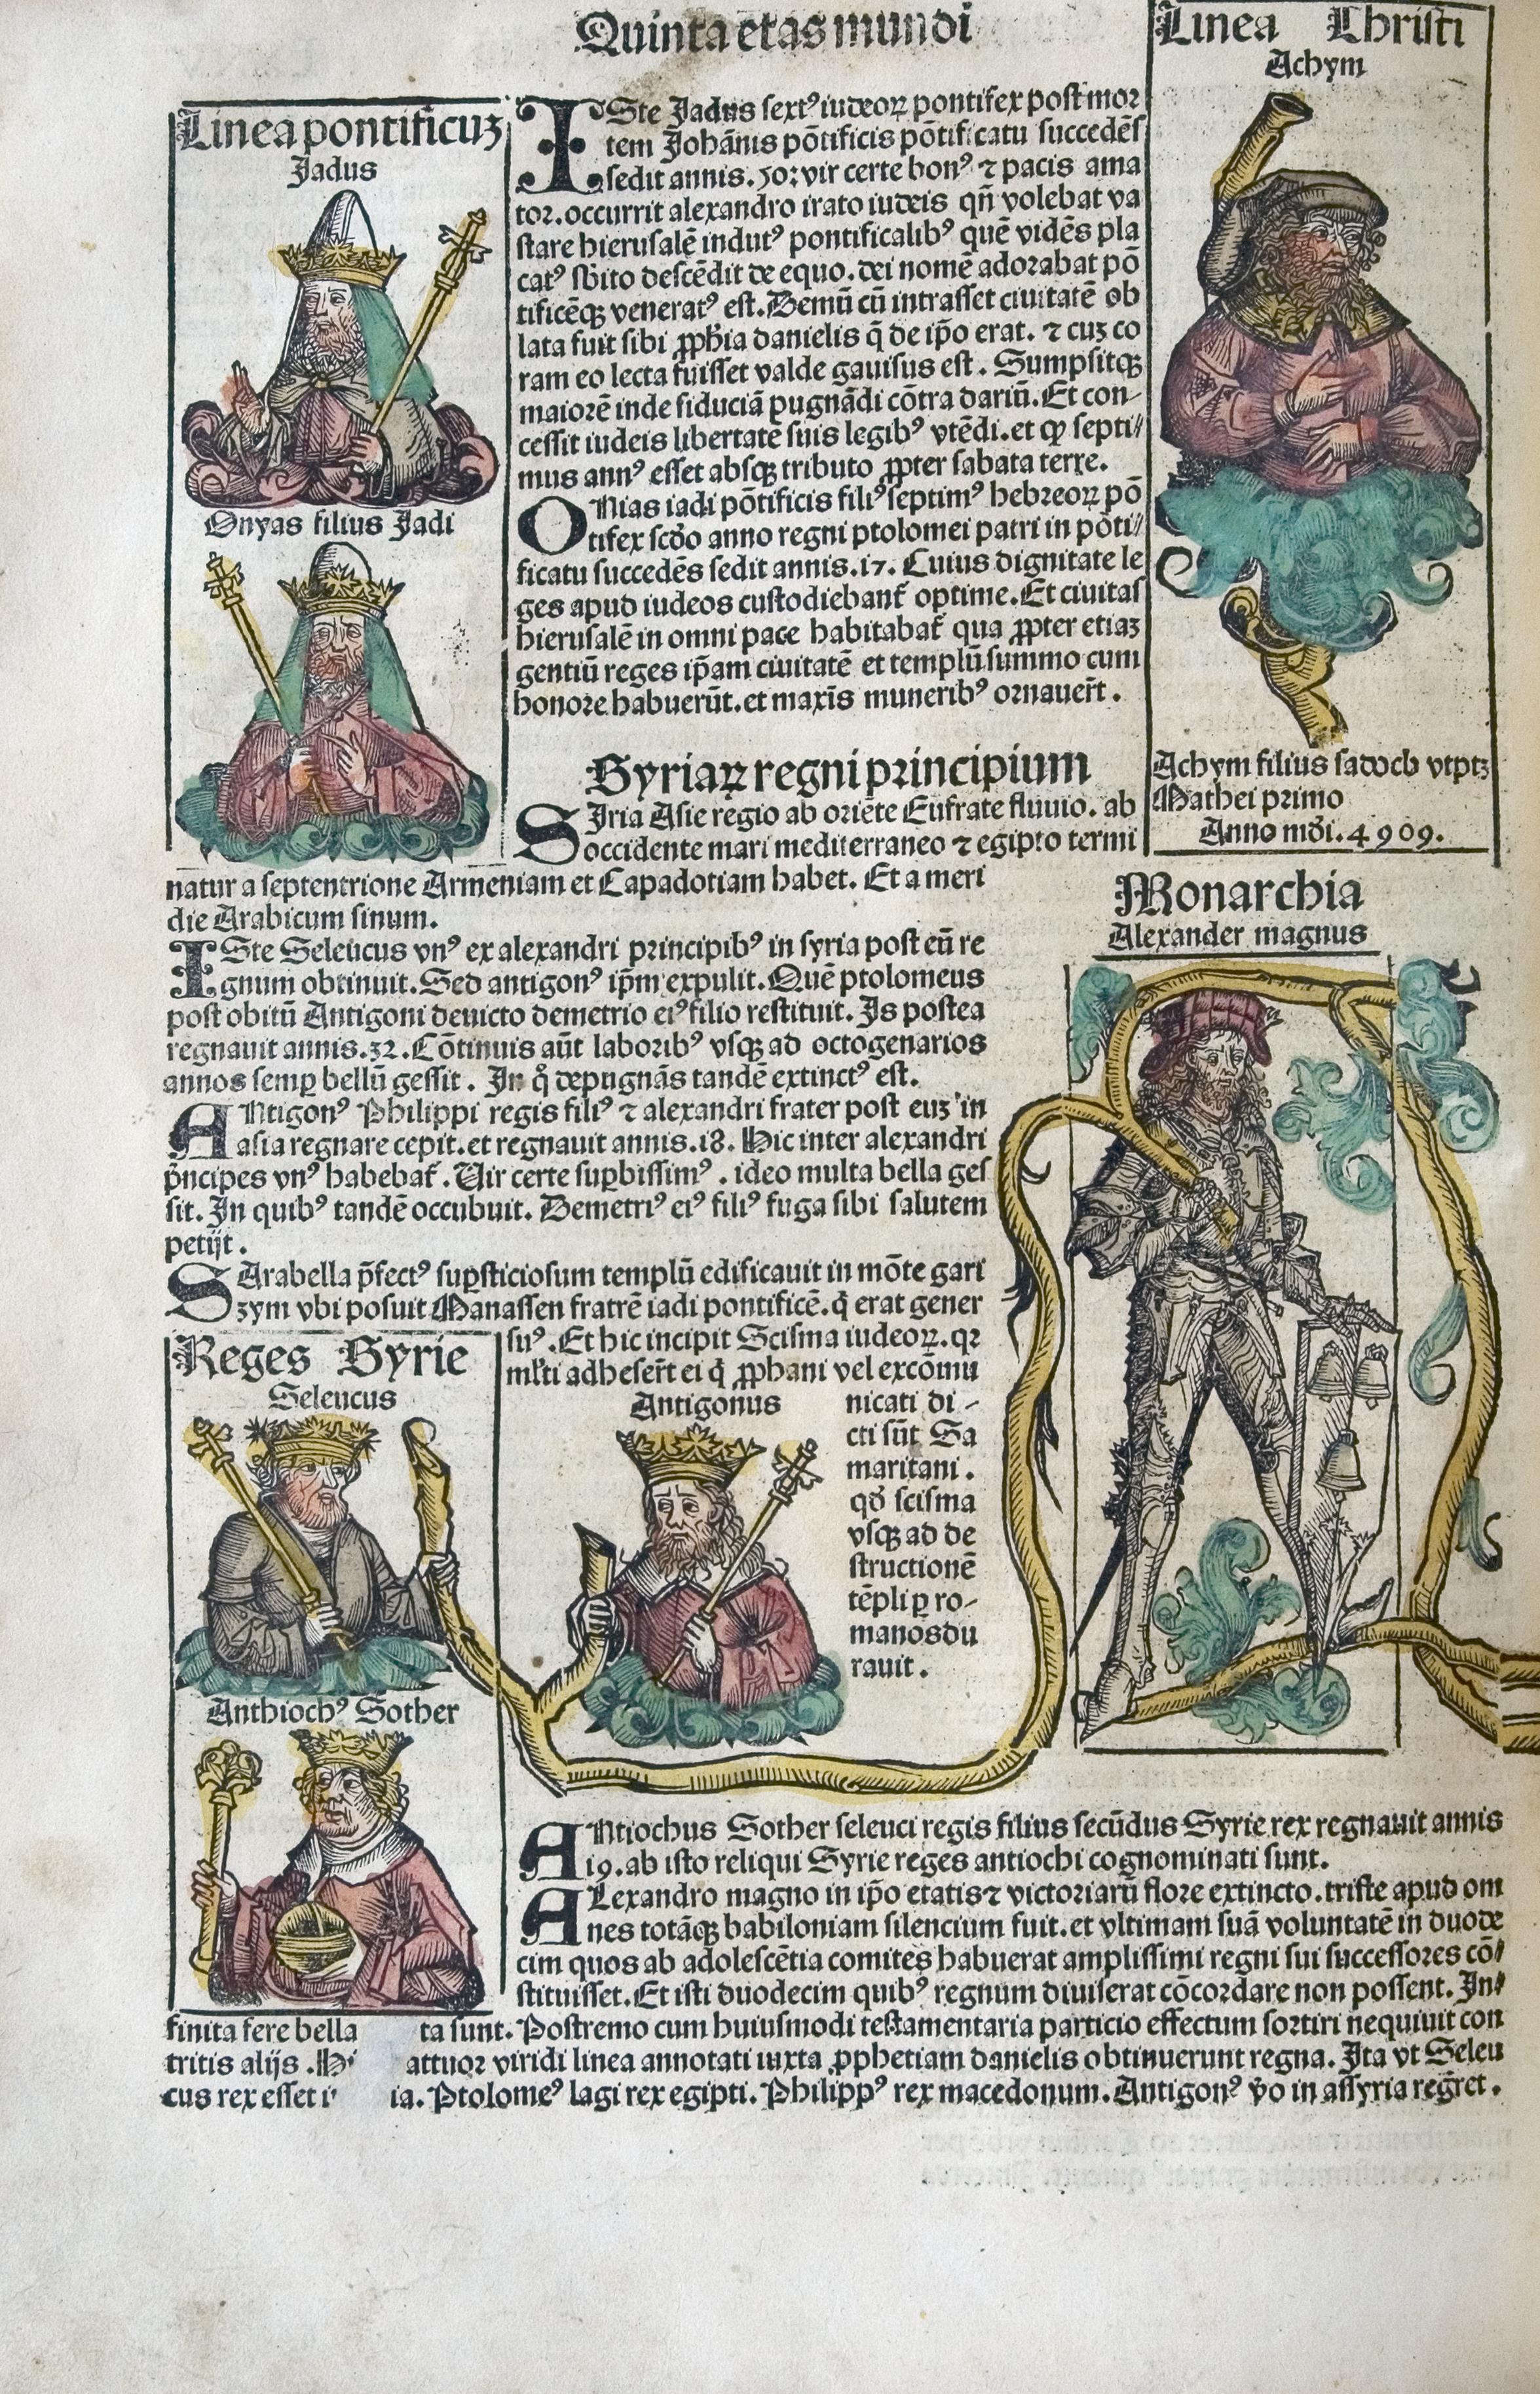 Quinta etas mundi
Linea Christi
Achym
Linea pontificuʒ
Jadus
ISte Jadus sextꝰ iudeoꝝ pontifex post mor
tem Johānis pōtificis pōtificatu succedēs
sedit annis .30: vir certe bonꝰ ⁊ pacis ama
tor. occurrit alexandro irato iudeis qn̄ volebat va
stare hierusalē indutꝰ pontificalibꝰ quē vidēs pla
catꝰ sbito descēdit de equo. dei nomē adorabat pō
tificēqꝫ veneratꝰ est. Demū cū intrasset ciuitatē ob
lata fuit sibi ꝓphīa danielis q̄ de ip̄o erat. ⁊ cuʒ co
ram eo lecta fuisset valde gauisus est. Sumpsitqꝫ
maiorē inde fiduciā pugnādi cōtra dariū. Et con-
cessit iudeis libertatē suis legibꝰ vtēdi. et qꝙ septi-
mus annꝰ esset absqꝫ tributo ꝓpter sabata terre.
Onyas filius Jadi
ONias iadi pōtificis filiꝰ septimꝰ hebreoꝝ pō
tifex scd̄o anno regni ptolomei patri in pōti-
ficatu succedēs sedit annis .17. Cuius dignitate le
ges apud iudeos custodiebant᷑ optime. Et ciuitas
hierusalē in omni pace habitabat᷑ qua ꝓpter etiaʒ
gentiū reges ip̄am ciuitatē et templū summo cum
honore habuerūt. et maxīs muneribꝰ ornauer̄t.
Achym filius sadoch vtptʒ
Mathei primo
Anno mūdi. 4909.
Syriaꝝ regni principium
SJria Asie regio ab oriēte Eufrate fluuio. ab
occidente mari mediterraneo ⁊ egipto termi
natur a septentrione Armeniam et Capadotiam habet. Et a meri
die Arabicum sinum.
Monarchia
Alexander magnus
ISte Seleucus vnꝰ ex alexandri principibꝰ in syria post eū re
gnum obtinuit. Sed antigonꝰ ip̄m expulit. Quē ptolomeus
post obitū Antigoni deuicto demetrio eiꝰ filio restituit. Is postea
regnauit annis .32. Cōtinuis aūt laboribꝰ vsqꝫ ad octogenarios
annos semꝑ bellū gessit. In qͦ depugnās tandē extinctꝰ est.
ANtigonꝰ Philippi regis filiꝰ ⁊ alexandri frater post euʒ in
asia regnare cepit. et regnauit annis .18. Hic inter alexandri
p̄ncipes vnꝰ habebat᷑. Uir certe suꝑbissimꝰ. ideo multa bella ges
sit. In quibꝰ tandē occubuit. Demetriꝰ eiꝰ filiꝰ fuga sibi salutem
petijt.
SArabella p̄fectꝰ suꝑsticiosum templū edificauit in mōte gari
zym vbi posuit Manassen fratrē iadi pontificē. q̇ erat gener
suꝰ. Et hic incipit Scisma iudeoꝝ. qꝛ
ml̄ti adheser̄t ei q̇ ꝓphani vel excōmu
nicati di-
cti sūt Sa
maritani.
qd̄ scisma
vsqꝫ ad de
structionē
tēpli ꝑ ro-
manos du
rauit.
Reges Syrie
Seleucus
Antigonus
Anthiochꝰ Sother
ANtiochus Sother seleuci regis filius secūdus Syrie rex regnauit annis
19. ab isto reliqui Syrie reges antiochi cognominati sunt.
ALexandro magno in ip̄o etatis ⁊ victoriarū flore extincto. triste apud om
nes totāqꝫ babiloniam silencium fuit. et vltimam suā voluntatē in duode
cim quos ab adolescētia comites habuerat amplissimi regni sui successores cō-
stituisset. Et isti duodecim quibꝰ regnum diuiserat cōcordare non possent. In-
finita fere bella ta sunt. Postremo cum huiusmodi testamentaria particio effectum sortiri nequiuit con
tritis alijs. attuor viridi linea annotati iuxta ꝓphetiam danielis obtinuerunt regna. Ita vt Seleu
cus rex esset ia. Ptolomeꝰ lagi rex egipti. Philippꝰ rex macedonum. Antigonꝰ v̄o in assyria regr̄et.